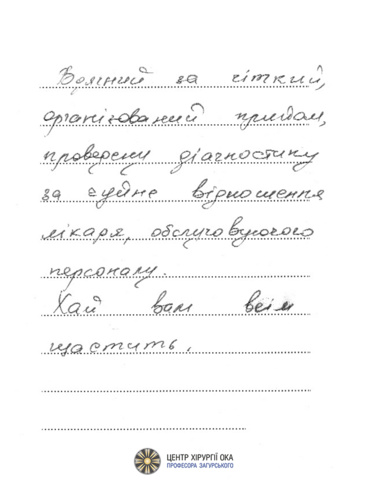 Вдячний за чіткий,
організований прийом,
проведену діагностику
за чуйне відношення
лікаря, обслуговуючого
персоналу.
Хай вам всім
щастить.
ЦЕНТР ХІРУРГІЇ ОКА
ПРОФЕСОРА ЗАГУРСЬКОГО